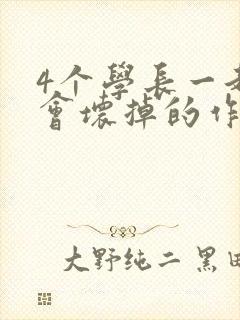 4个學長一
會壞掉的作
大野纯二 黑